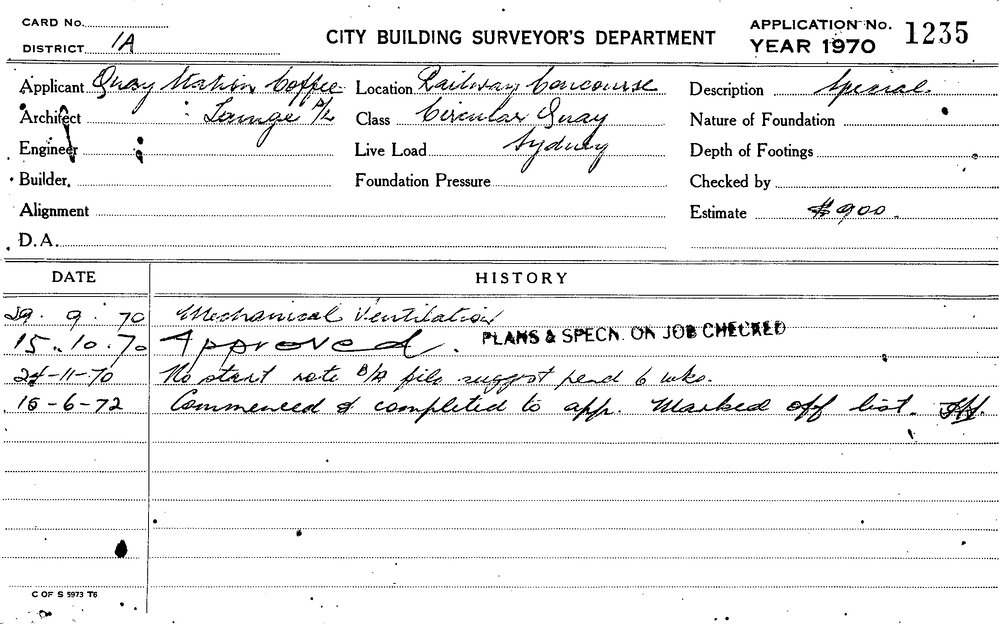 CARD No.
DISTRICT 1A
CITY BUILDING SURVEYOR'S DEPARTMENT
APPLICATION No. 1235
YEAR 1970
Applicant Quay Station Coffee Location Railway Concourse Description Special
Architect Lounge P/L Class Circular Quay Nature of Foundation
Engineer Live Load Sydney Depth of Footings
Builder. Foundation Pressure Checked by
Alignment Estimate $900.
D.A.
DATE HISTORY
29. 9. 70 Mechanical Ventilation
15. 10. 70 Approved. PLANS & SPECN. ON JOB CHECKED
24-11-70 No start note B/A file suggest pend 6 wks.
15-6-72 Commenced & completed to app. Marked off list.
C OF S 5973 T6